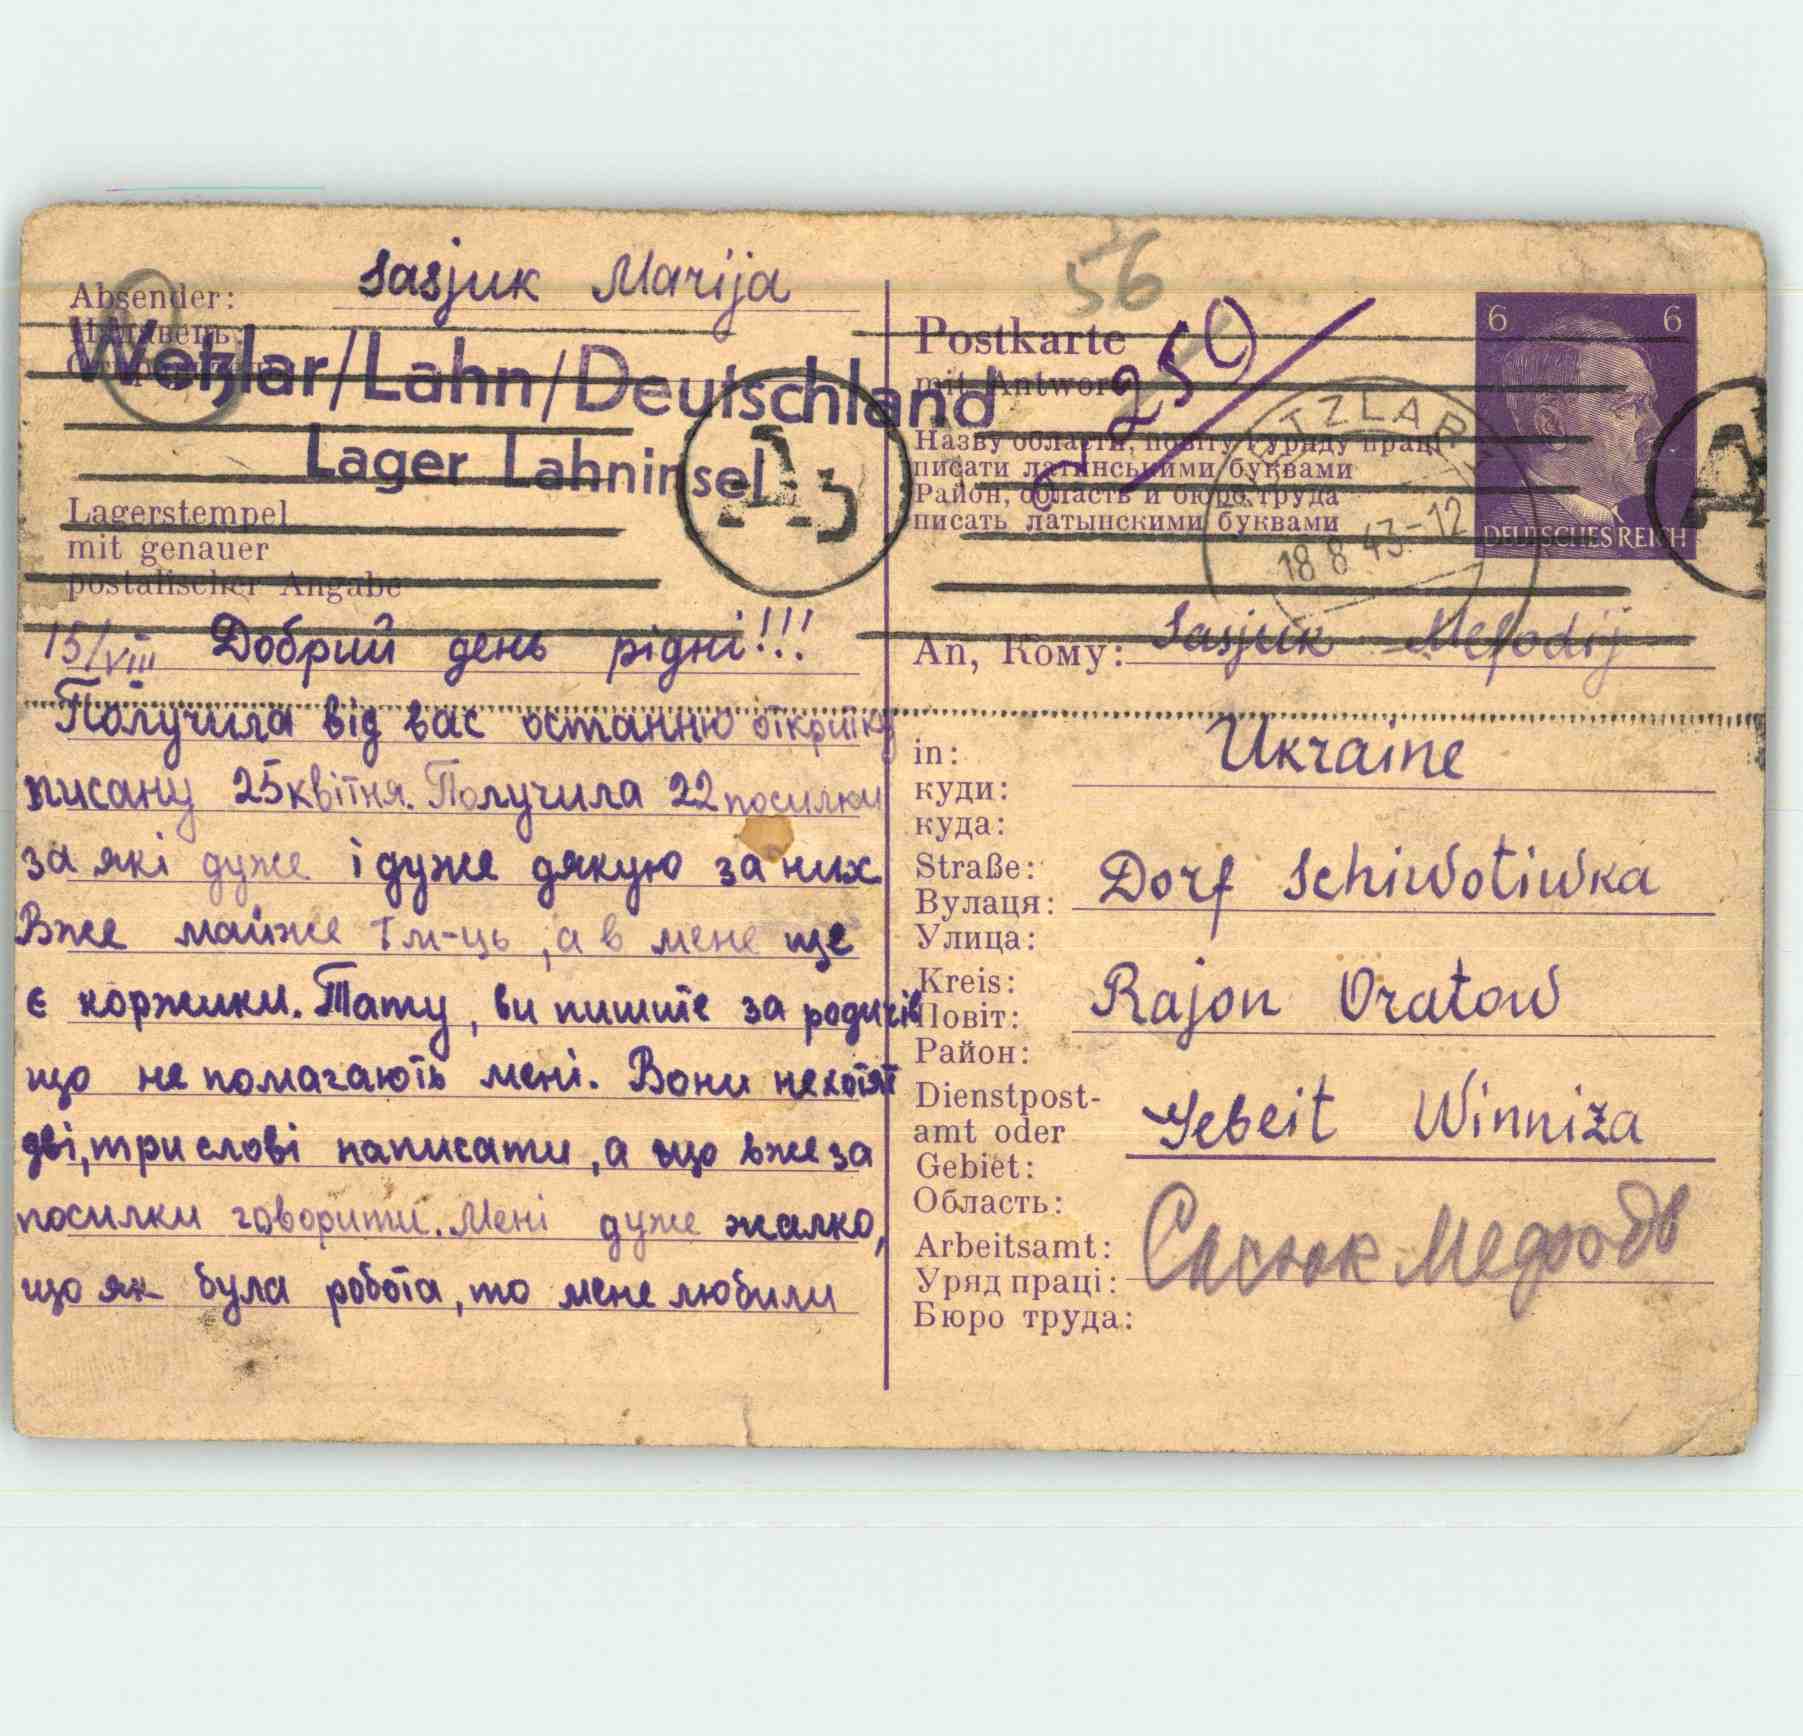 Absender: Sasjuk Marija
Wetzlar/Lahn/Deutschland
Lager Lahninsel
Lagerstempel
mit genauer
postalischer Angabe
15/VIII Добрий день рідні!!!
Получила від вас останню откритку
писану 25 квітня. Получила 22 посилки
за які дуже і дуже дякую за них
Вже майже І м-ць, а в мене ще
є коржики. Тату, ви пишите за родичів
що не помагають мені. Вони нехотят
дві, три слові написати, а що вже за
посилки говорити. Мені дуже жалко,
що як була робота, то мене любили
56
250
Postkarte
mit Antwort
Назву области, повіту і уряду праці
писати латинськими буквами
Район, область и бюро труда
писать латынскими буквами
6 6
DEUTSCHES REICH
TZLAR
18.8.43.-12
A3
A
An, Кому: Sasjuk Mefodij
in: Ukraine
куди:
куда:
Straße: Dorf Schiwotiwka
Вулаця:
Улица:
Kreis: Rajon Oratow
Повіт:
Район:
Dienstpost-
amt oder Gebeit Winniza
Gebiet:
Область:
Arbeitsamt: Сасюк Мефодь
Уряд праці:
Бюро труда: